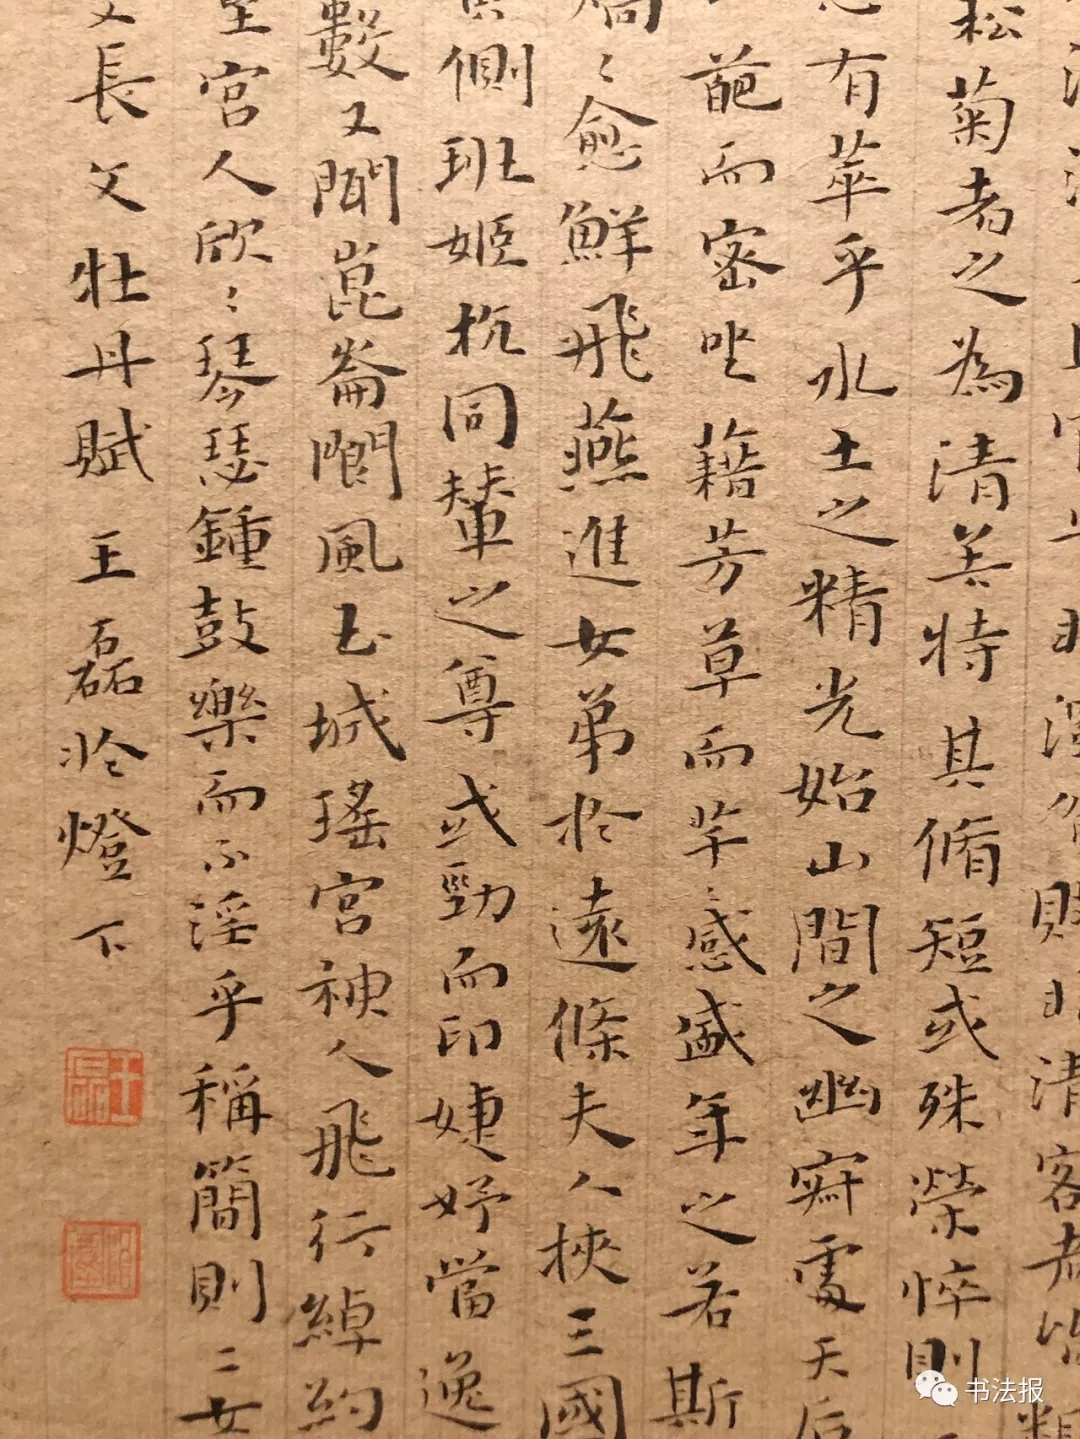 清客者皆
松菊者之為清善特其脩短或殊榮悴則
有萃乎水土之精光始山間之幽寂處天后
葩而密坐藉芳草而芊〻感盛年之若斯
〻愈鮮飛燕進女弟於遠條夫人挾三國
側班姬抗同輦之尊或勁而印婕妤當逸
數又聞崑崙閬風玉城瑤宮神人飛行綽約
宮人欣〻琴瑟鍾鼓樂而不淫乎稱簡則二女
長文牡丹賦 王磊於燈下
王磊
书法报